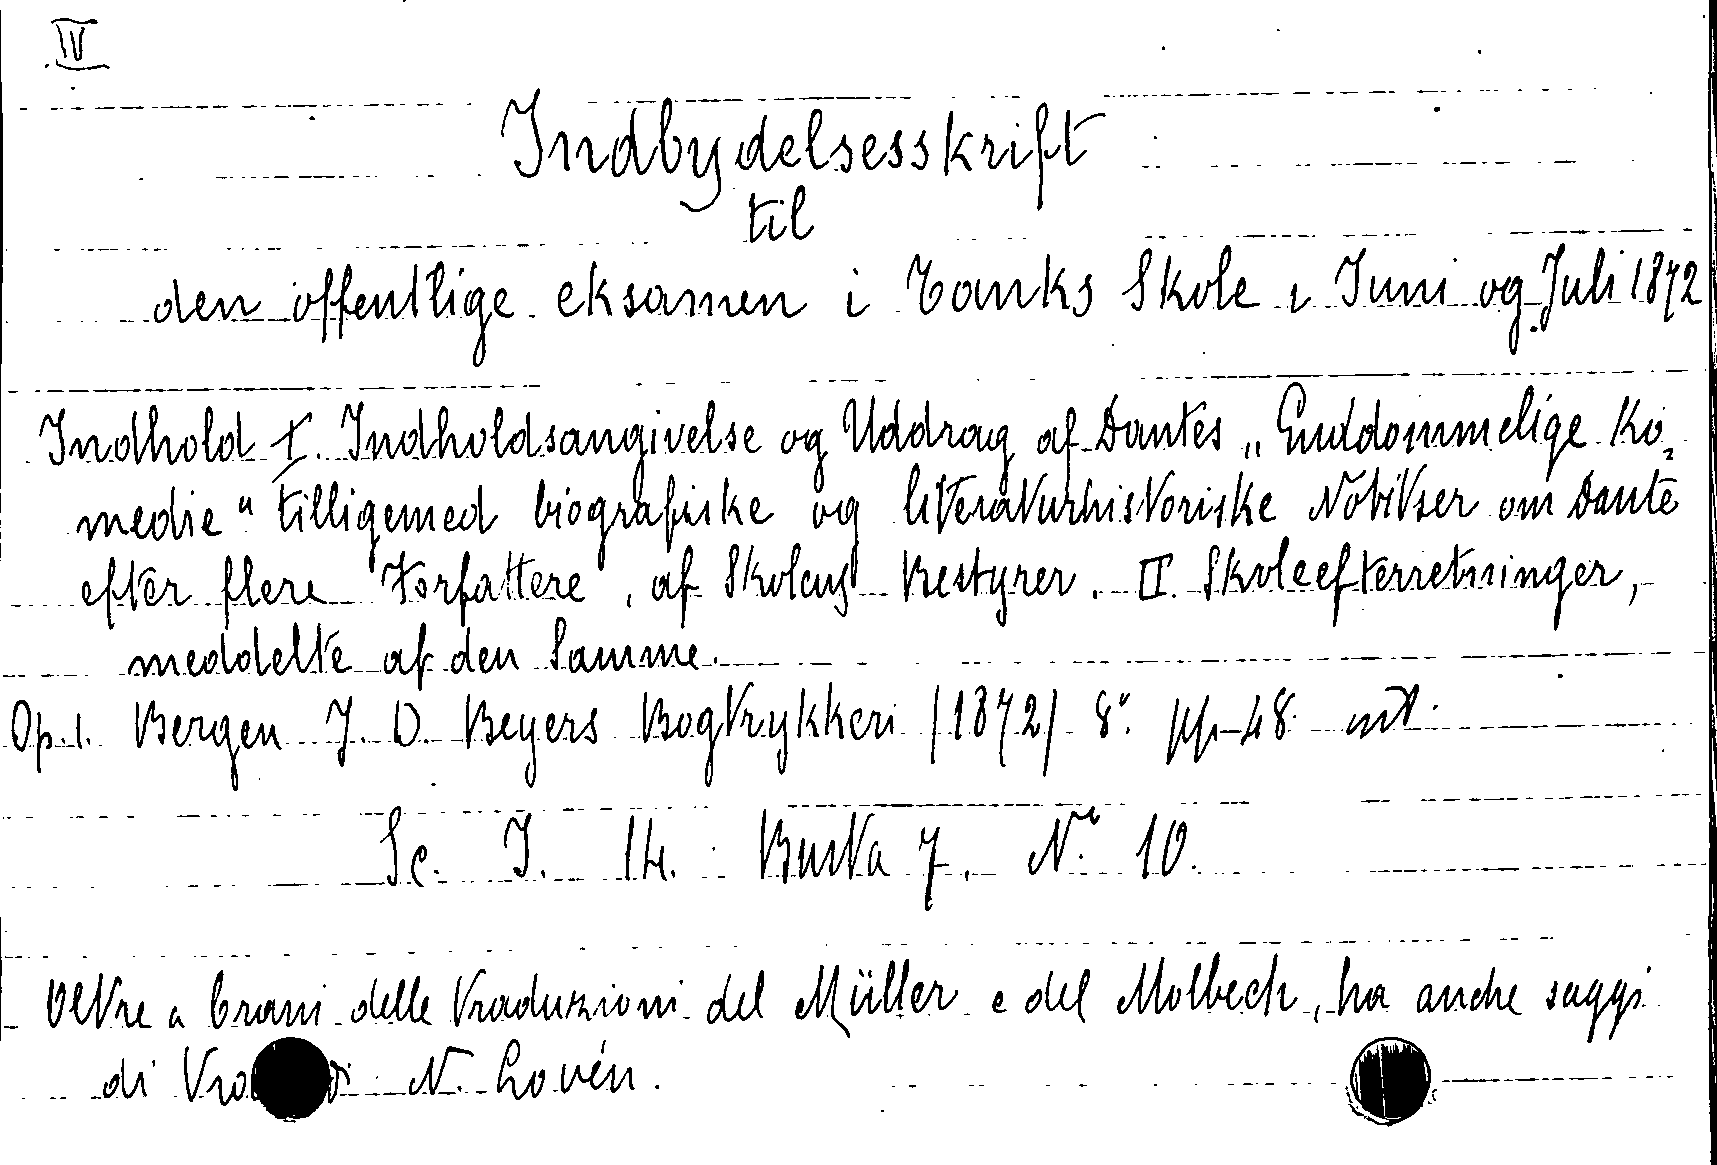 IV
Indbydelsesskrift
til
den offentlige eksamen i Tanks Skole i Juni og Juli 1872
Indhold I. Indholdsangivelse og Uddrag af Dantes „Guddommelige Ko=
medie" tilligemed biografiske og literaturhistoriske Notitser om Dante
efter flere Forfattere, af Skolens Bestyrer. II. Skoleefterretninger,
meddelte af den Samme.
Op. 1. Bergen J. D. Beyers Bogtrykkeri (1872) 8°. pp. 48
Sc. I. 14. Busta 7. N.° 10.
Oltre a brani delle traduzioni del Müller e del Molbech, ha anche saggi
di N. Lovén.